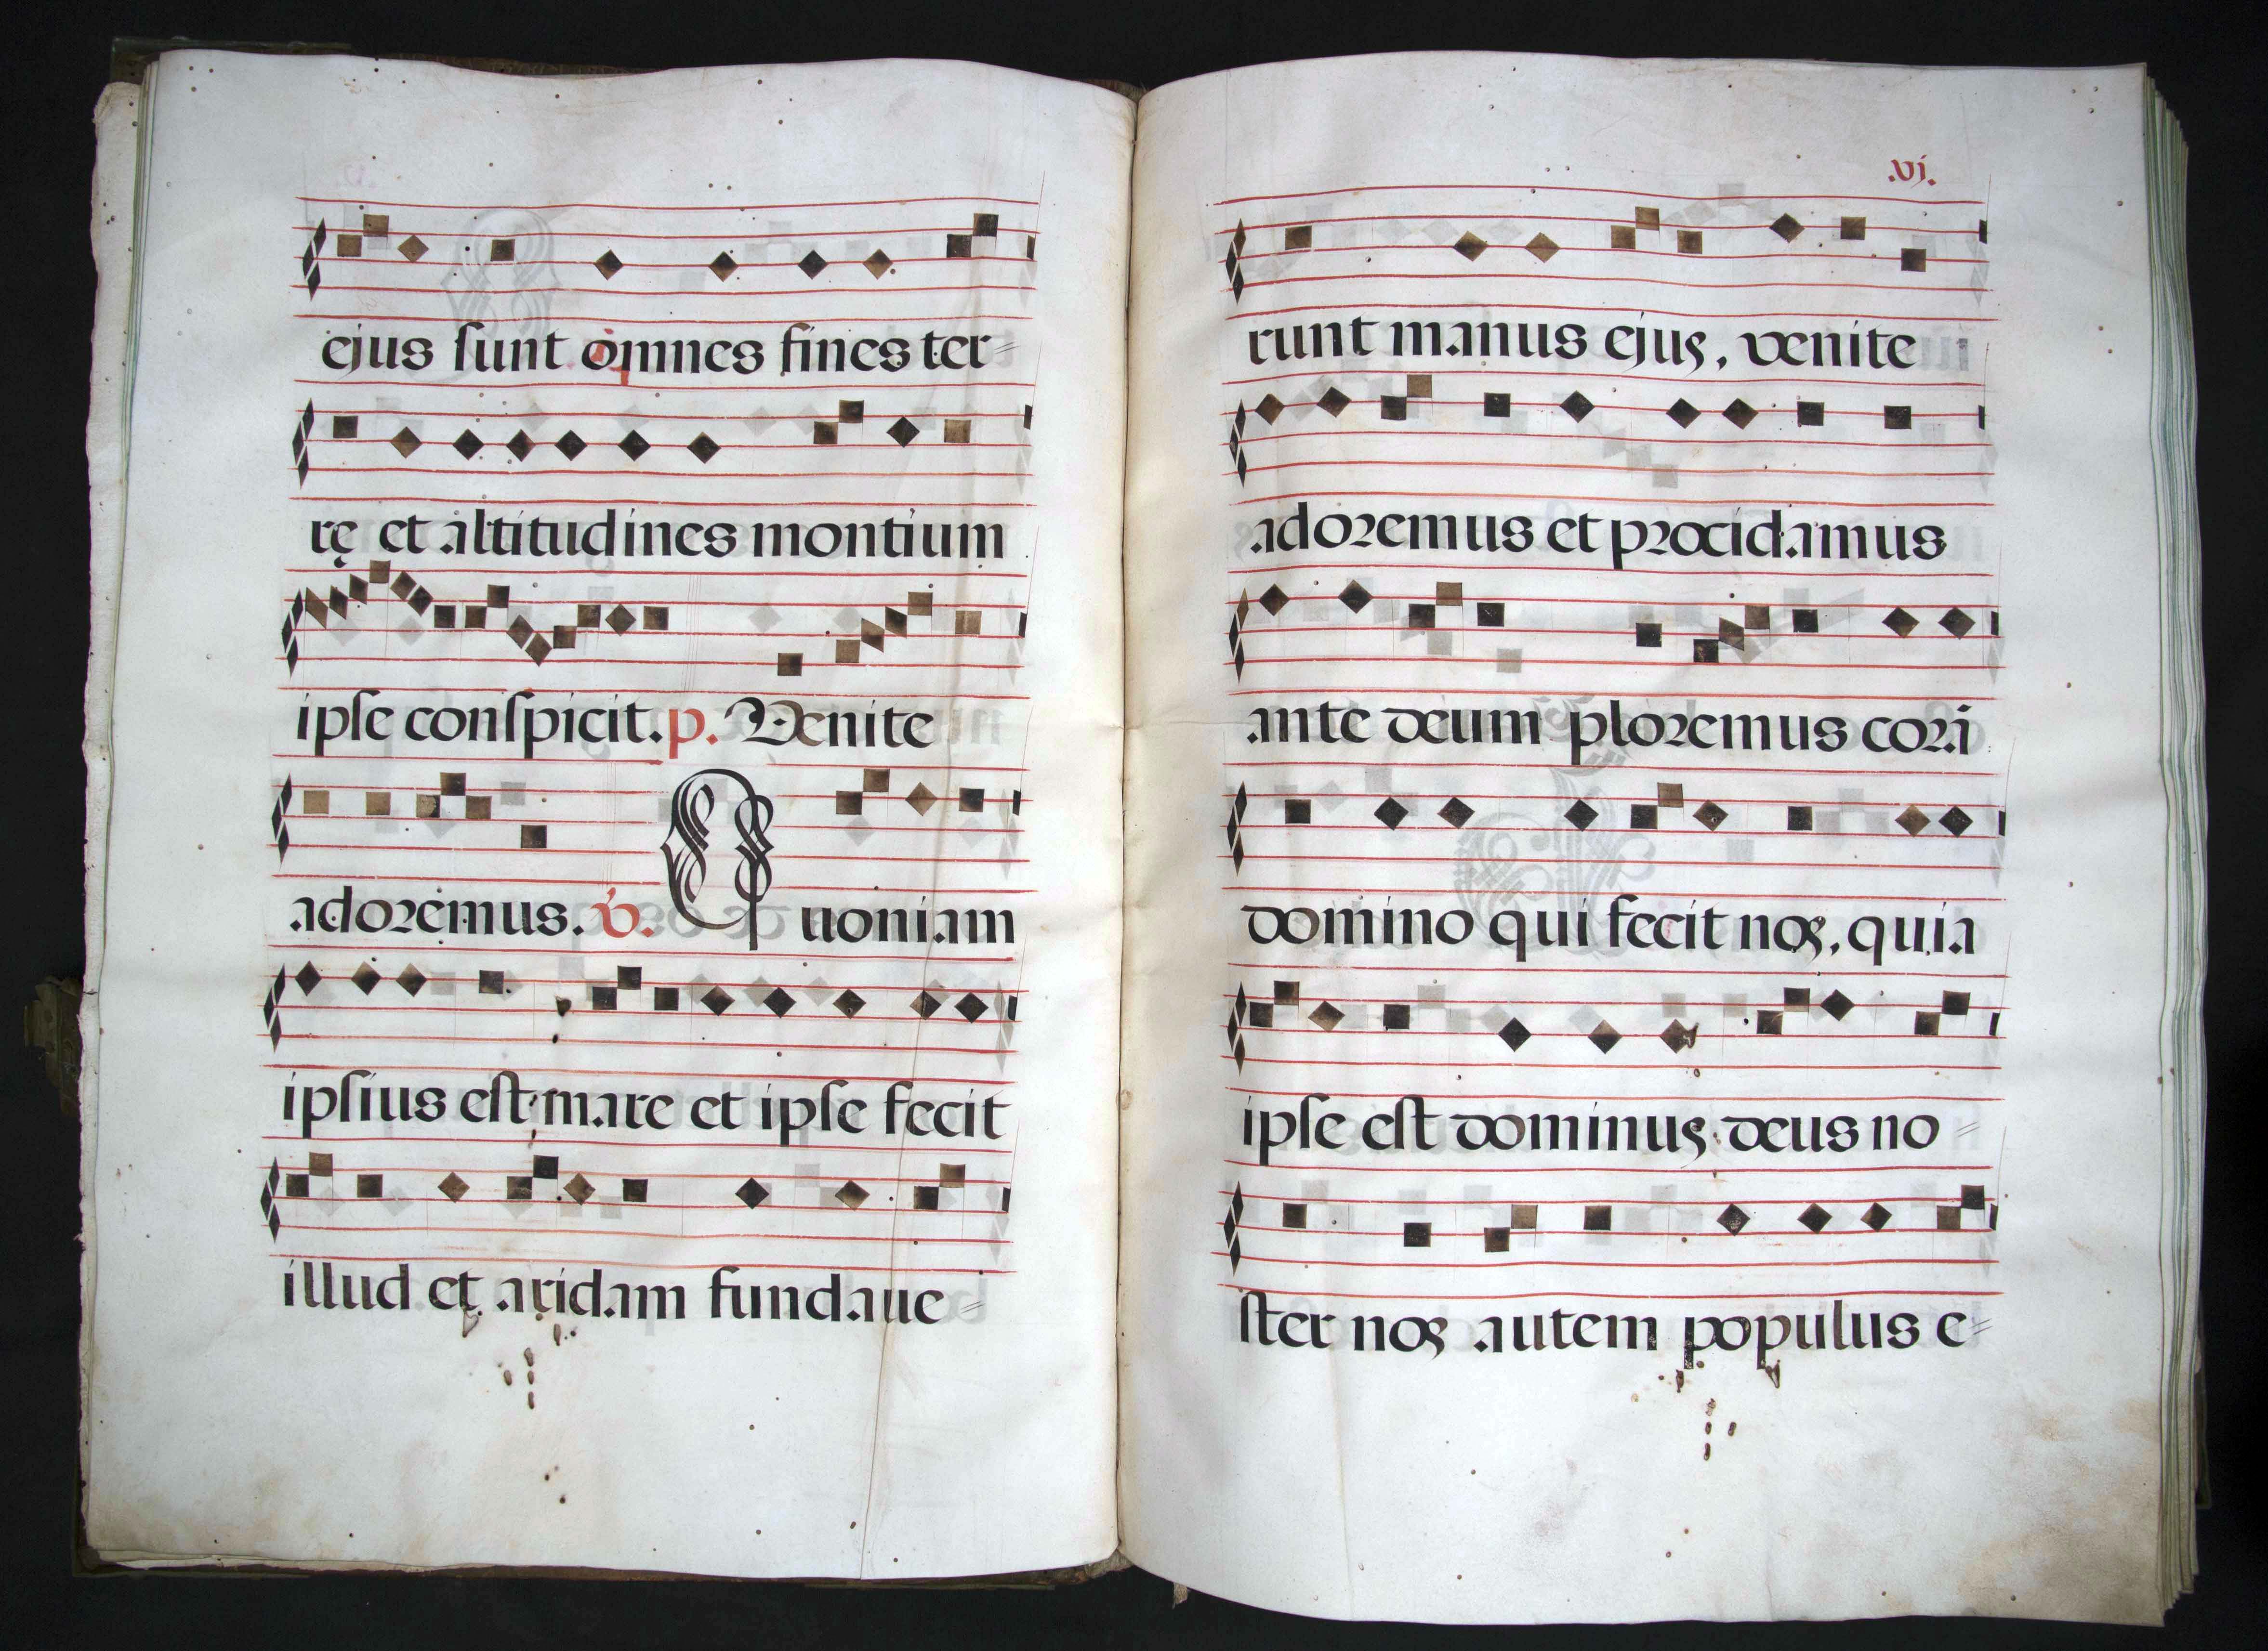 ejus sunt omnes fines ter=
rę et altitudines montium
ipse conspicit. p. Venite
adoremus. v. Quoniam
ipsius est mare et ipse fecit
illud et aridam fundaue=
.vi.
runt manus ejus, venite
adoremus et procidamus
ante deum ploremus corã
domino qui fecit nos, quia
ipse est dominus deus no=
ster nos autem populus e=